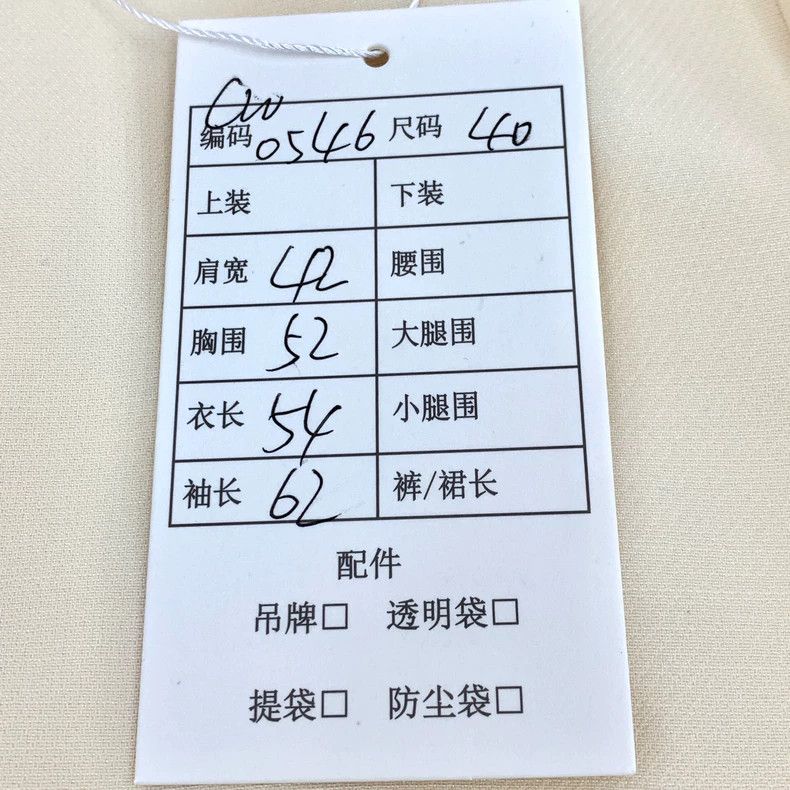 CW
编码 0546 尺码 40
上装 下装
肩宽 42 腰围
胸围 52 大腿围
衣长 54 小腿围
袖长 62 裤/裙长
配件
吊牌□ 透明袋□
提袋□ 防尘袋□